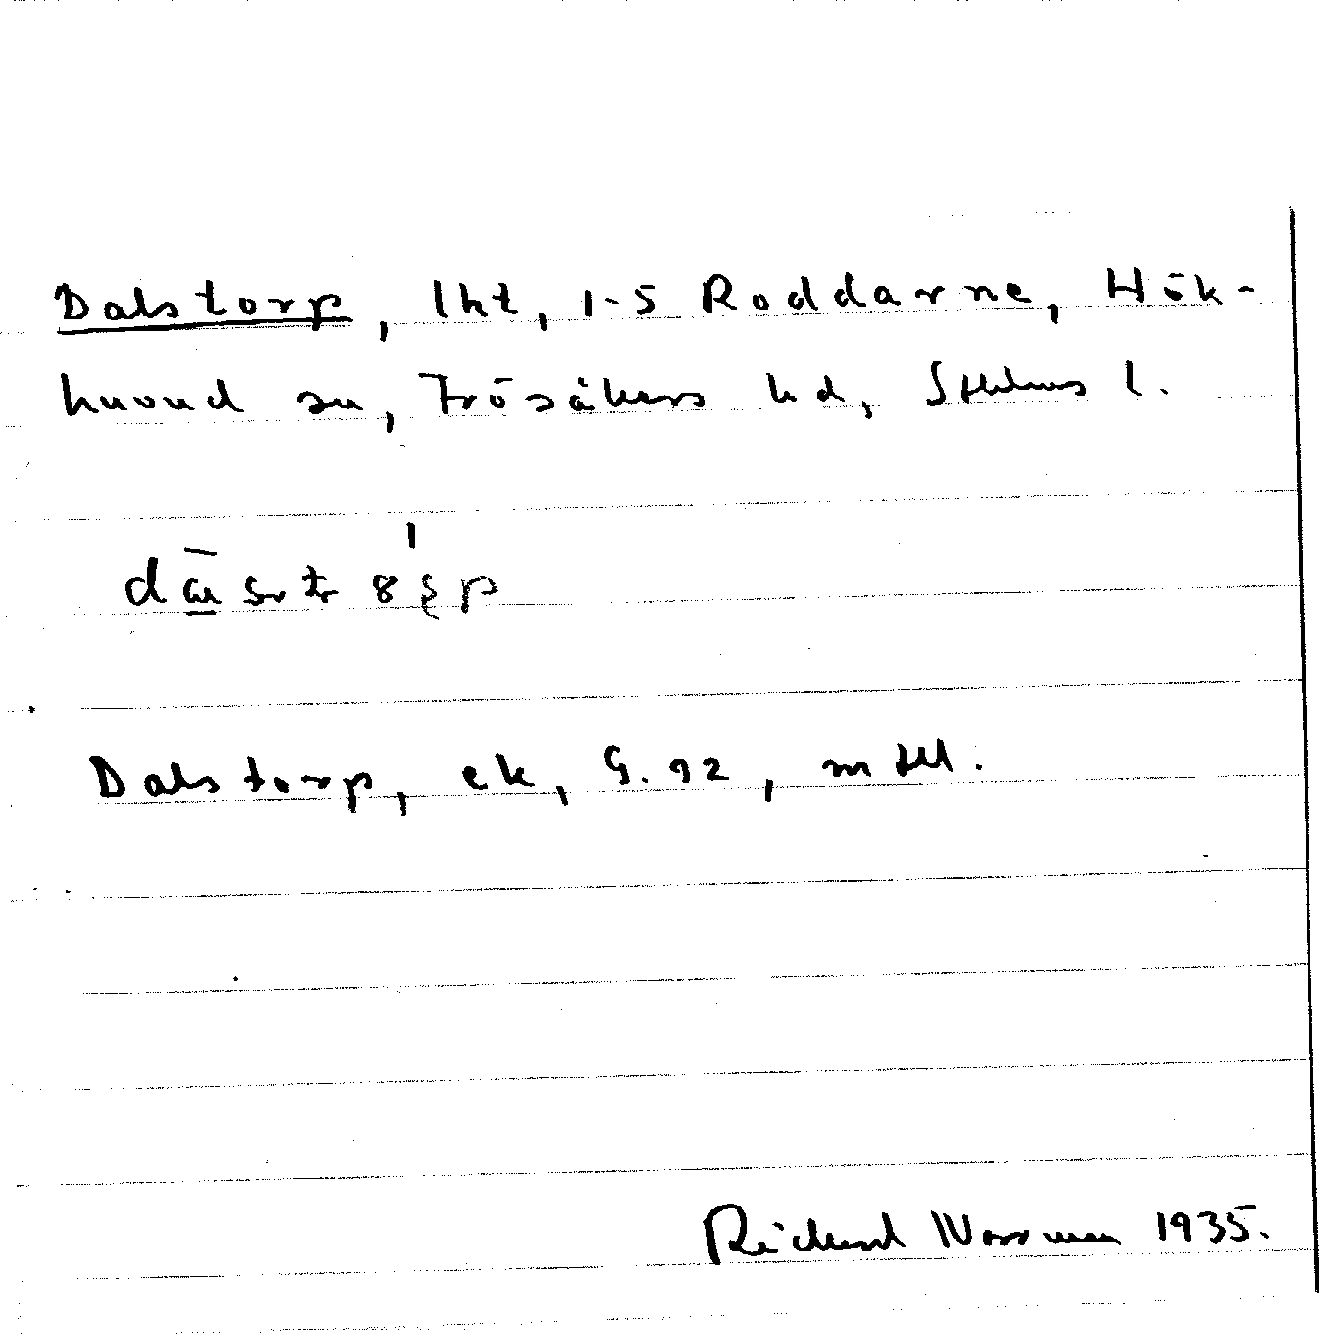 Dalstorp, lht, 1-5 Roddarne, Hök-
huvud sn, Frösåkers hd, Sthlms l.
Dalstorp, ek, G. 92, mtll.
Richard Norrman 1935.